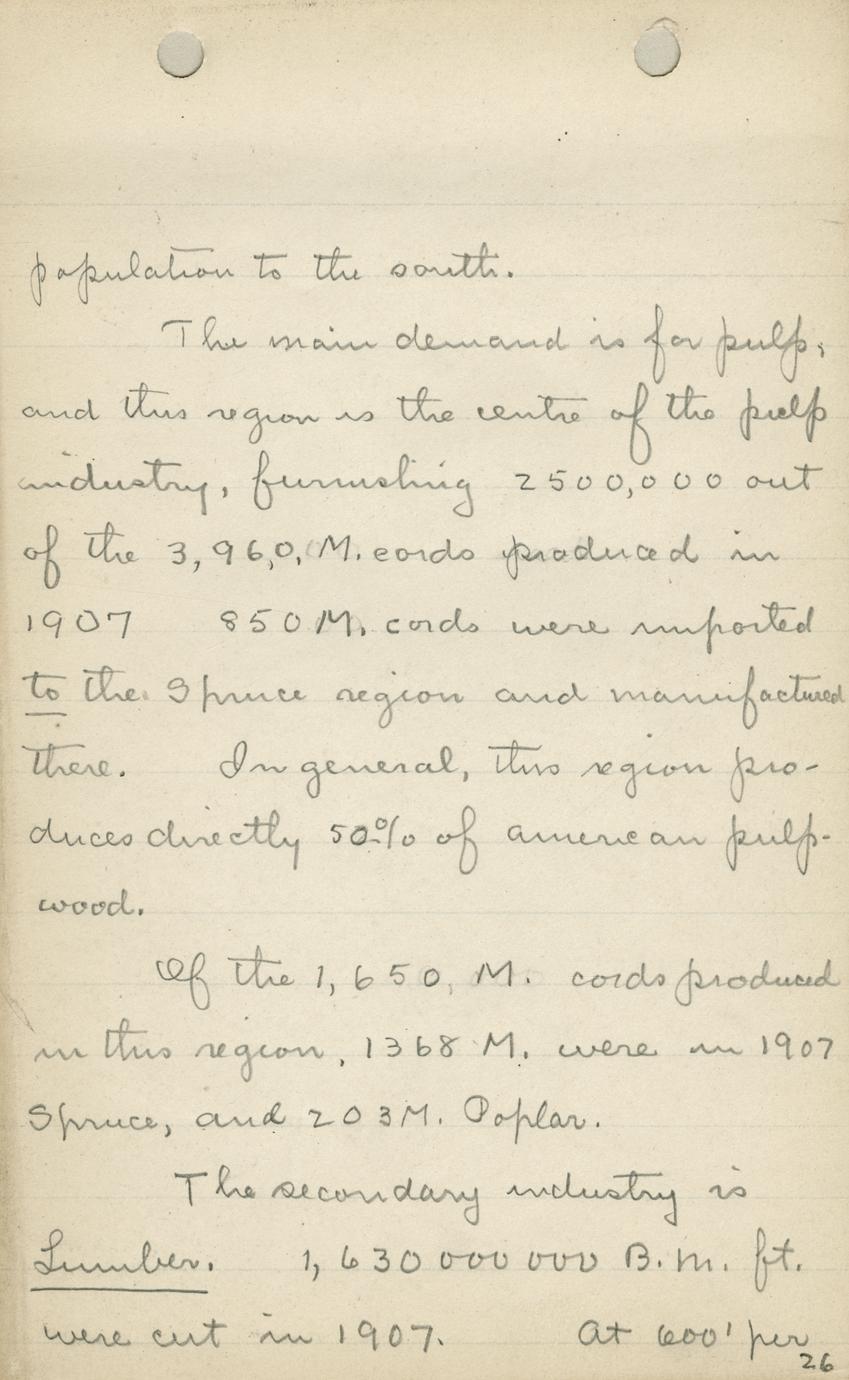 population to the south.
The main demand is for pulp,
and this region is the centre of the pulp
industry, furnishing 2500,000 out
of the 3,960, M. cords produced in
1907 850 M. cords were imported
to the Spruce region and manufactured
there. In general, this region pro-
duces directly 50% of american pulp-
wood.
Of the 1,650, M. cords produced
in this region, 1368 M. were in 1907
Spruce, and 203 M. Poplar.
The secondary industry is
Lumber. 1,630 000 000 B.m. ft.
were cut in 1907. At 600' per
26